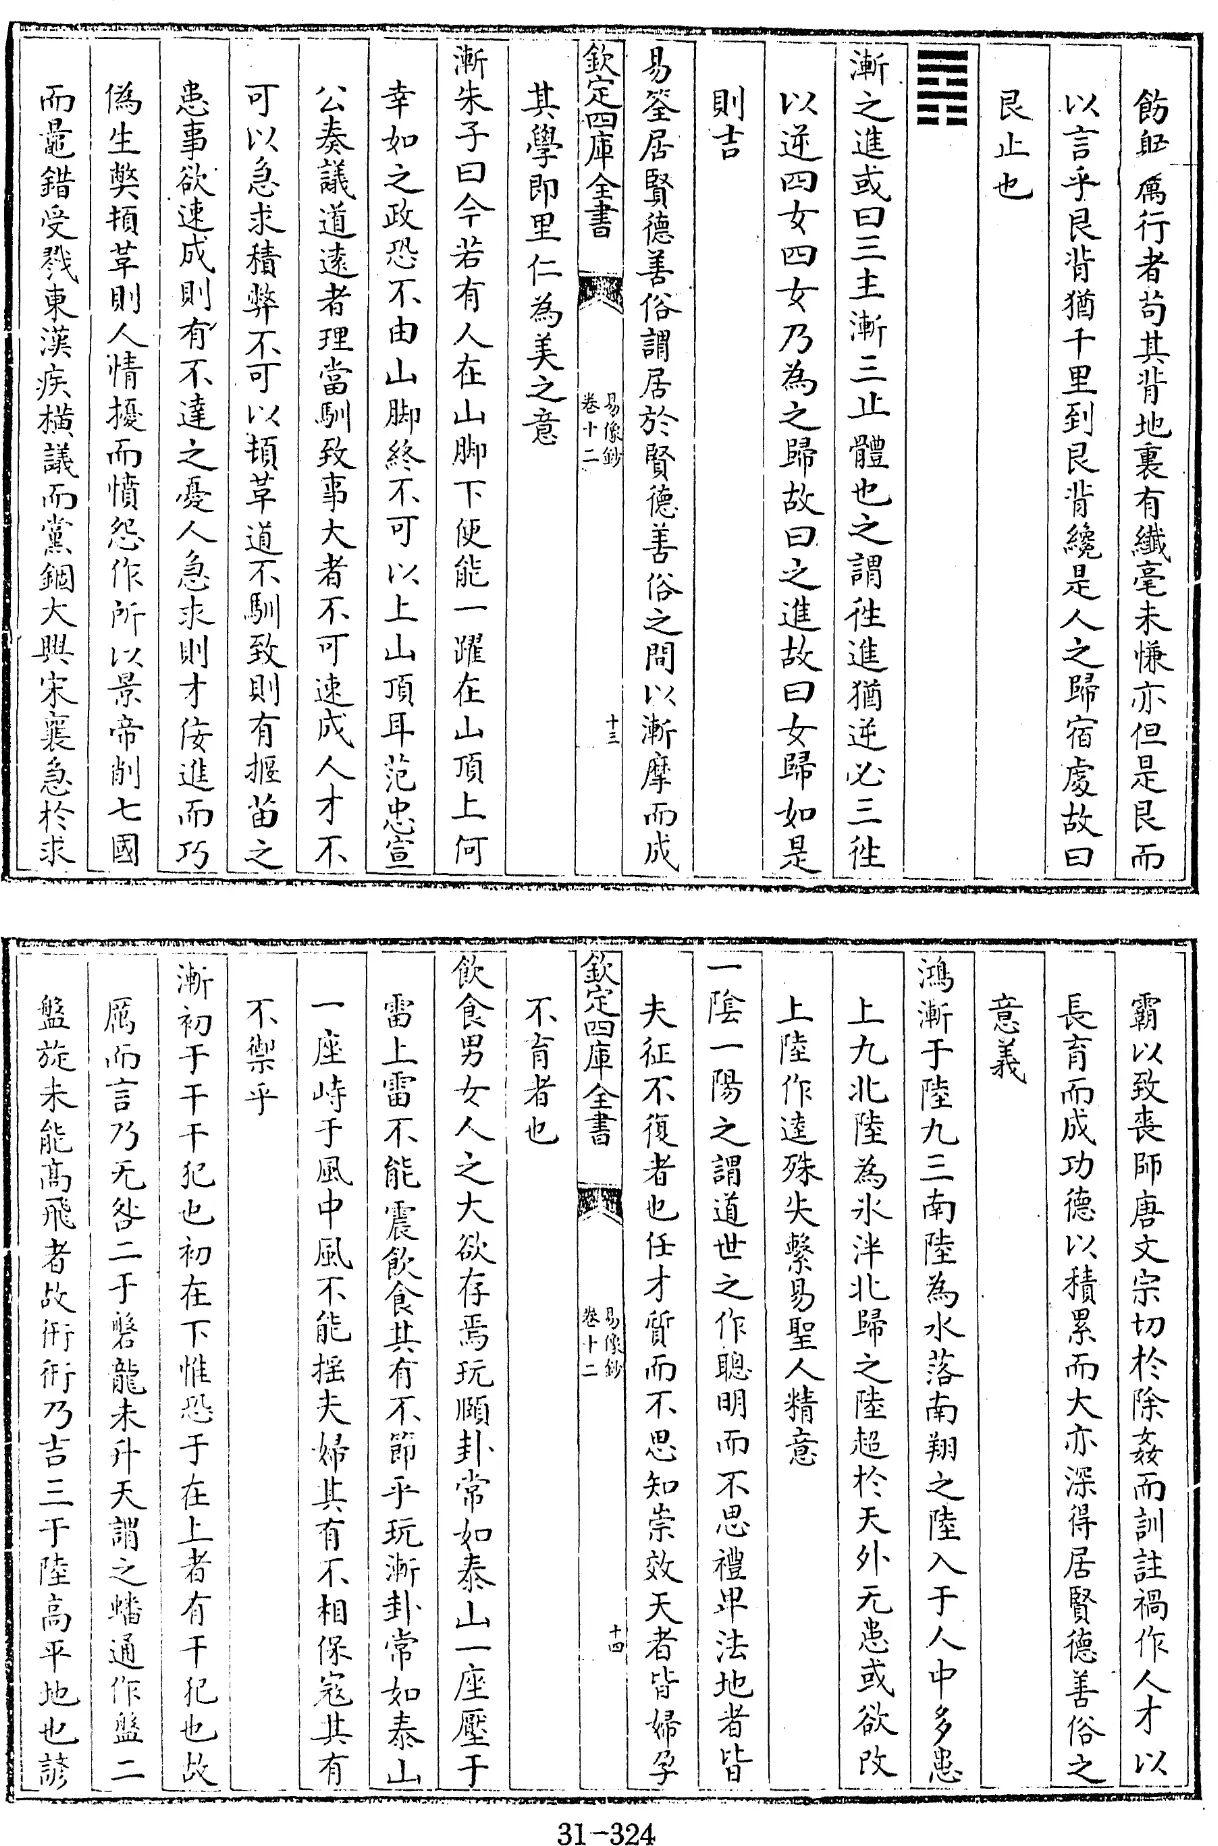 飭躬厲行者苟其背地裏有纎毫未慊亦但是艮而
以言乎艮背猶千里到艮背纔是人之歸宿處故曰
艮止也
䷴
漸之進或曰三主漸三止體也之謂徃進猶逆必三徃
以逆四女四女乃為之歸故曰之進故曰女歸如是
則吉
易筌居賢德善俗謂居於賢德善俗之間以漸摩而成
欽定四庫全書
易像鈔
卷十二
十三
其學即里仁為美之意
漸朱子曰今若有人在山脚下便能一躍在山頂上何
幸如之政恐不由山脚終不可以上山頂耳范忠宣
公奏議道逺者理當馴致事大者不可速成人才不
可以急求積弊不可以頓革道不馴致則有揠苗之
患事欲速成則有不達之憂人急求則才佞進而巧
偽生弊頓革則人情擾而憤怨作所以景帝削七國
而鼂錯受戮東漢疾橫議而黨錮大興宋襄急於求
霸以致喪師唐文宗切於除姦而訓註禍作人才以
長育而成功德以積累而大亦深得居賢德善俗之
意義
鴻漸于陸九三南陸為水落南翔之陸入于人中多患
上九北陸為氷泮北歸之陸超於天外无患或欲改
上陸作逵殊失繫易聖人精意
一陰一陽之謂道世之作聰明而不思禮卑法地者皆
夫征不復者也任才質而不思知崇效天者皆婦孕
欽定四庫全書
易像鈔
卷十二
十四
不育者也
飲食男女人之大欲存焉玩頤卦常如泰山一座壓于
雷上雷不能震飲食其有不節乎玩漸卦常如泰山
一座峙于風中風不能揺夫婦其有不相保寇其有
不禦乎
漸初于干干犯也初在下惟恐于在上者有干犯也故
厲而言乃无咎二于磐龍未升天謂之蟠通作盤二
盤旋未能髙飛者故衎衎乃吉三于陸高平地也諺
31-324